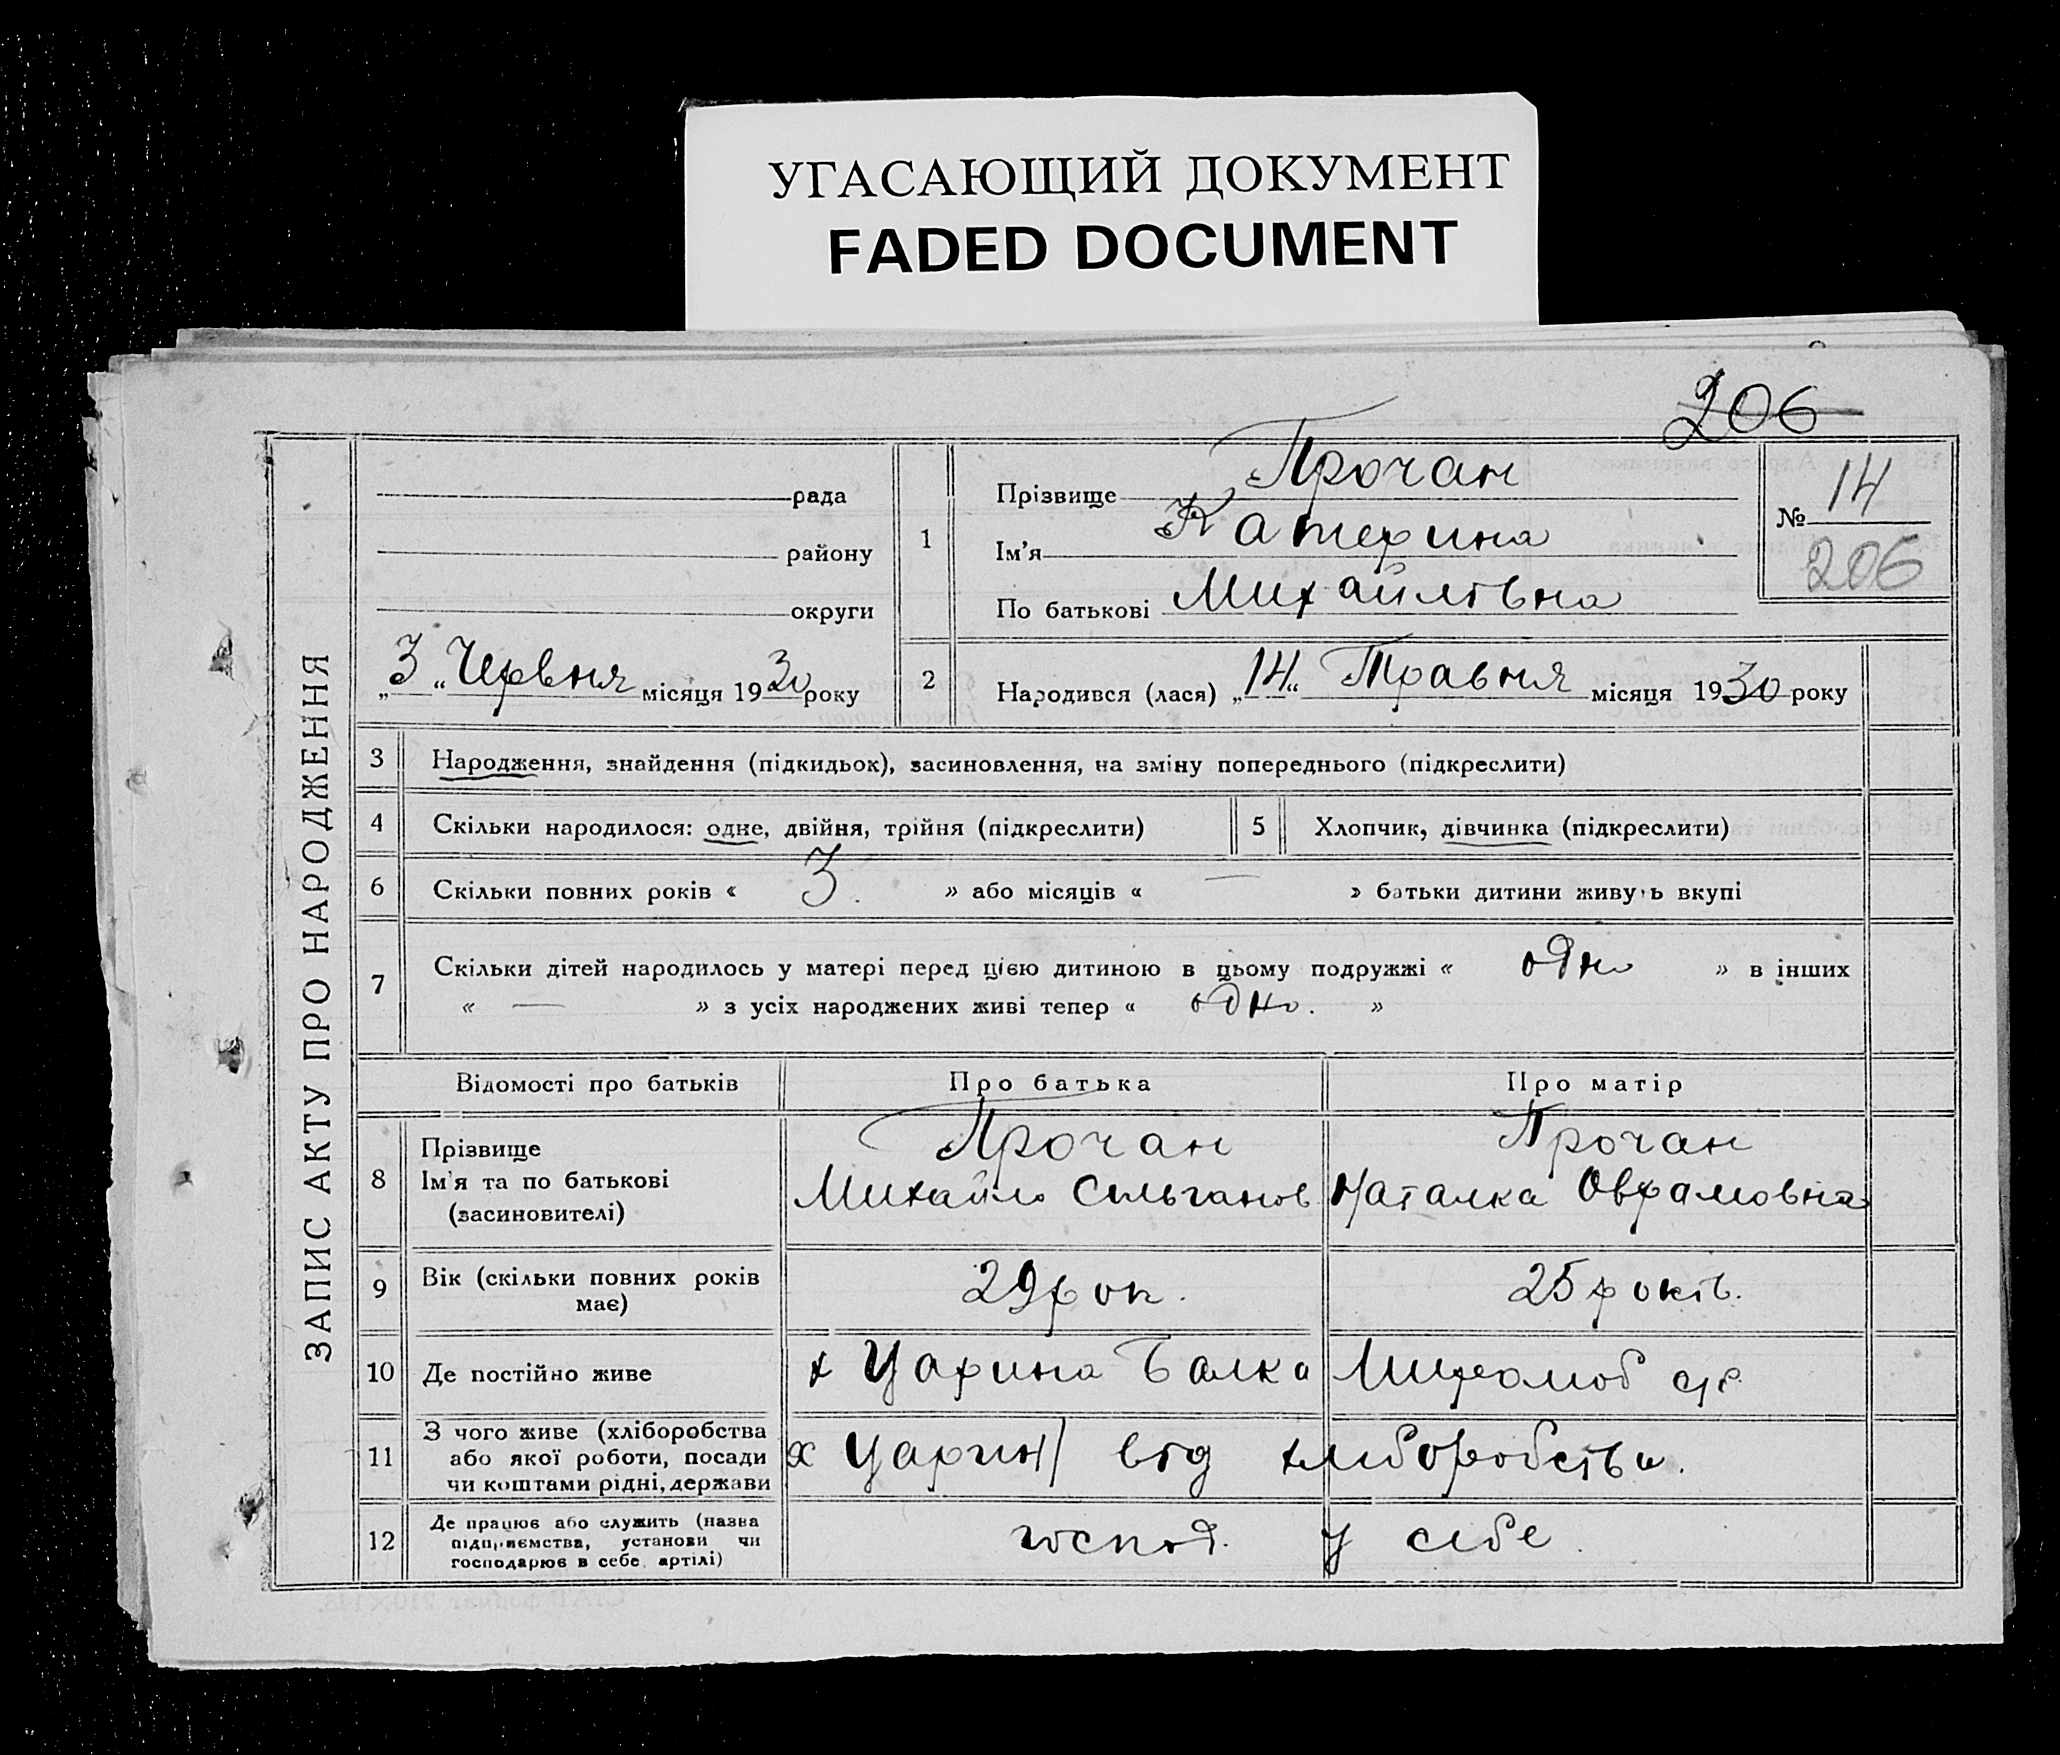 УГАСАЮЩИЙ ДОКУМЕНТ
FADED DOCUMENT
206
ЗАПИС АКТУ ПРО НАРОДЖЕННЯ
рада
району
округи
„3“ Червня місяця 1930 року
1
Прізвище Прочан
Ім'я Катерина
По батькові Михайлівна
№ 14
206
2 Народився (лася) „14“ Травня місяця 1930 року
3 Народження, знайдення (підкидьок), засиновлення, на зміну попереднього (підкреслити)
4 Скільки народилося: одне, двійня, трійня (підкреслити) 5 Хлопчик, дівчинка (підкреслити)
6 Скільки повних років « 3. » або місяців « — » батьки дитини живуть вкупі
7 Скільки дітей народилось у матері перед цією дитиною в цьому подружжі « одно » в інших
« — » з усіх народжених живі тепер « одно. »
Відомості про батьків Про батька Про матір
8 Прізвище Прочан Прочан
Ім'я та по батькові Михайло Наталка Оврамовна
(засиновителі)
9 Вік (скільки повних років має) 29 рок. 25 років.
10 Де постійно живе х Царина Балка
11 З чого живе (хліборобства або якої роботи, посади чи коштами рідні, держави від хліборобства.
12 Де працює або служить (назва підприємства, установи чи господарює в себе, артілі) господ. у себе.